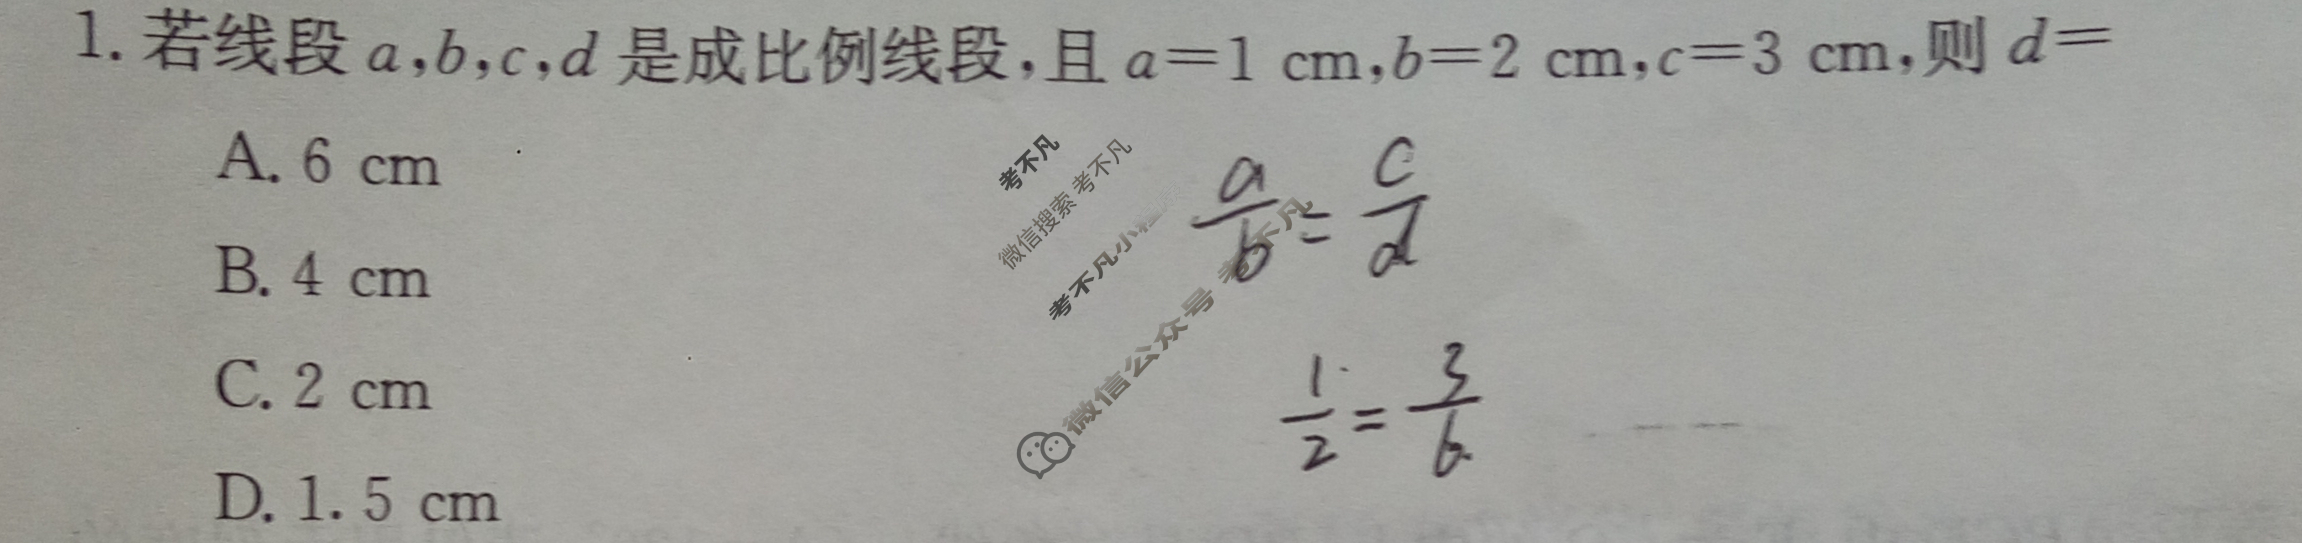 1. 若线段 a,b,c,d 是成比例线段,且 a=1 cm,b=2 cm,c=3 cm,则 d=
A. 6 cm
B. 4 cm
C. 2 cm
D. 1. 5 cm
a/b = c/d
1/2 = 3/6
考不凡
微信搜索 考不凡
考不凡小程序
微信公众号 考不凡